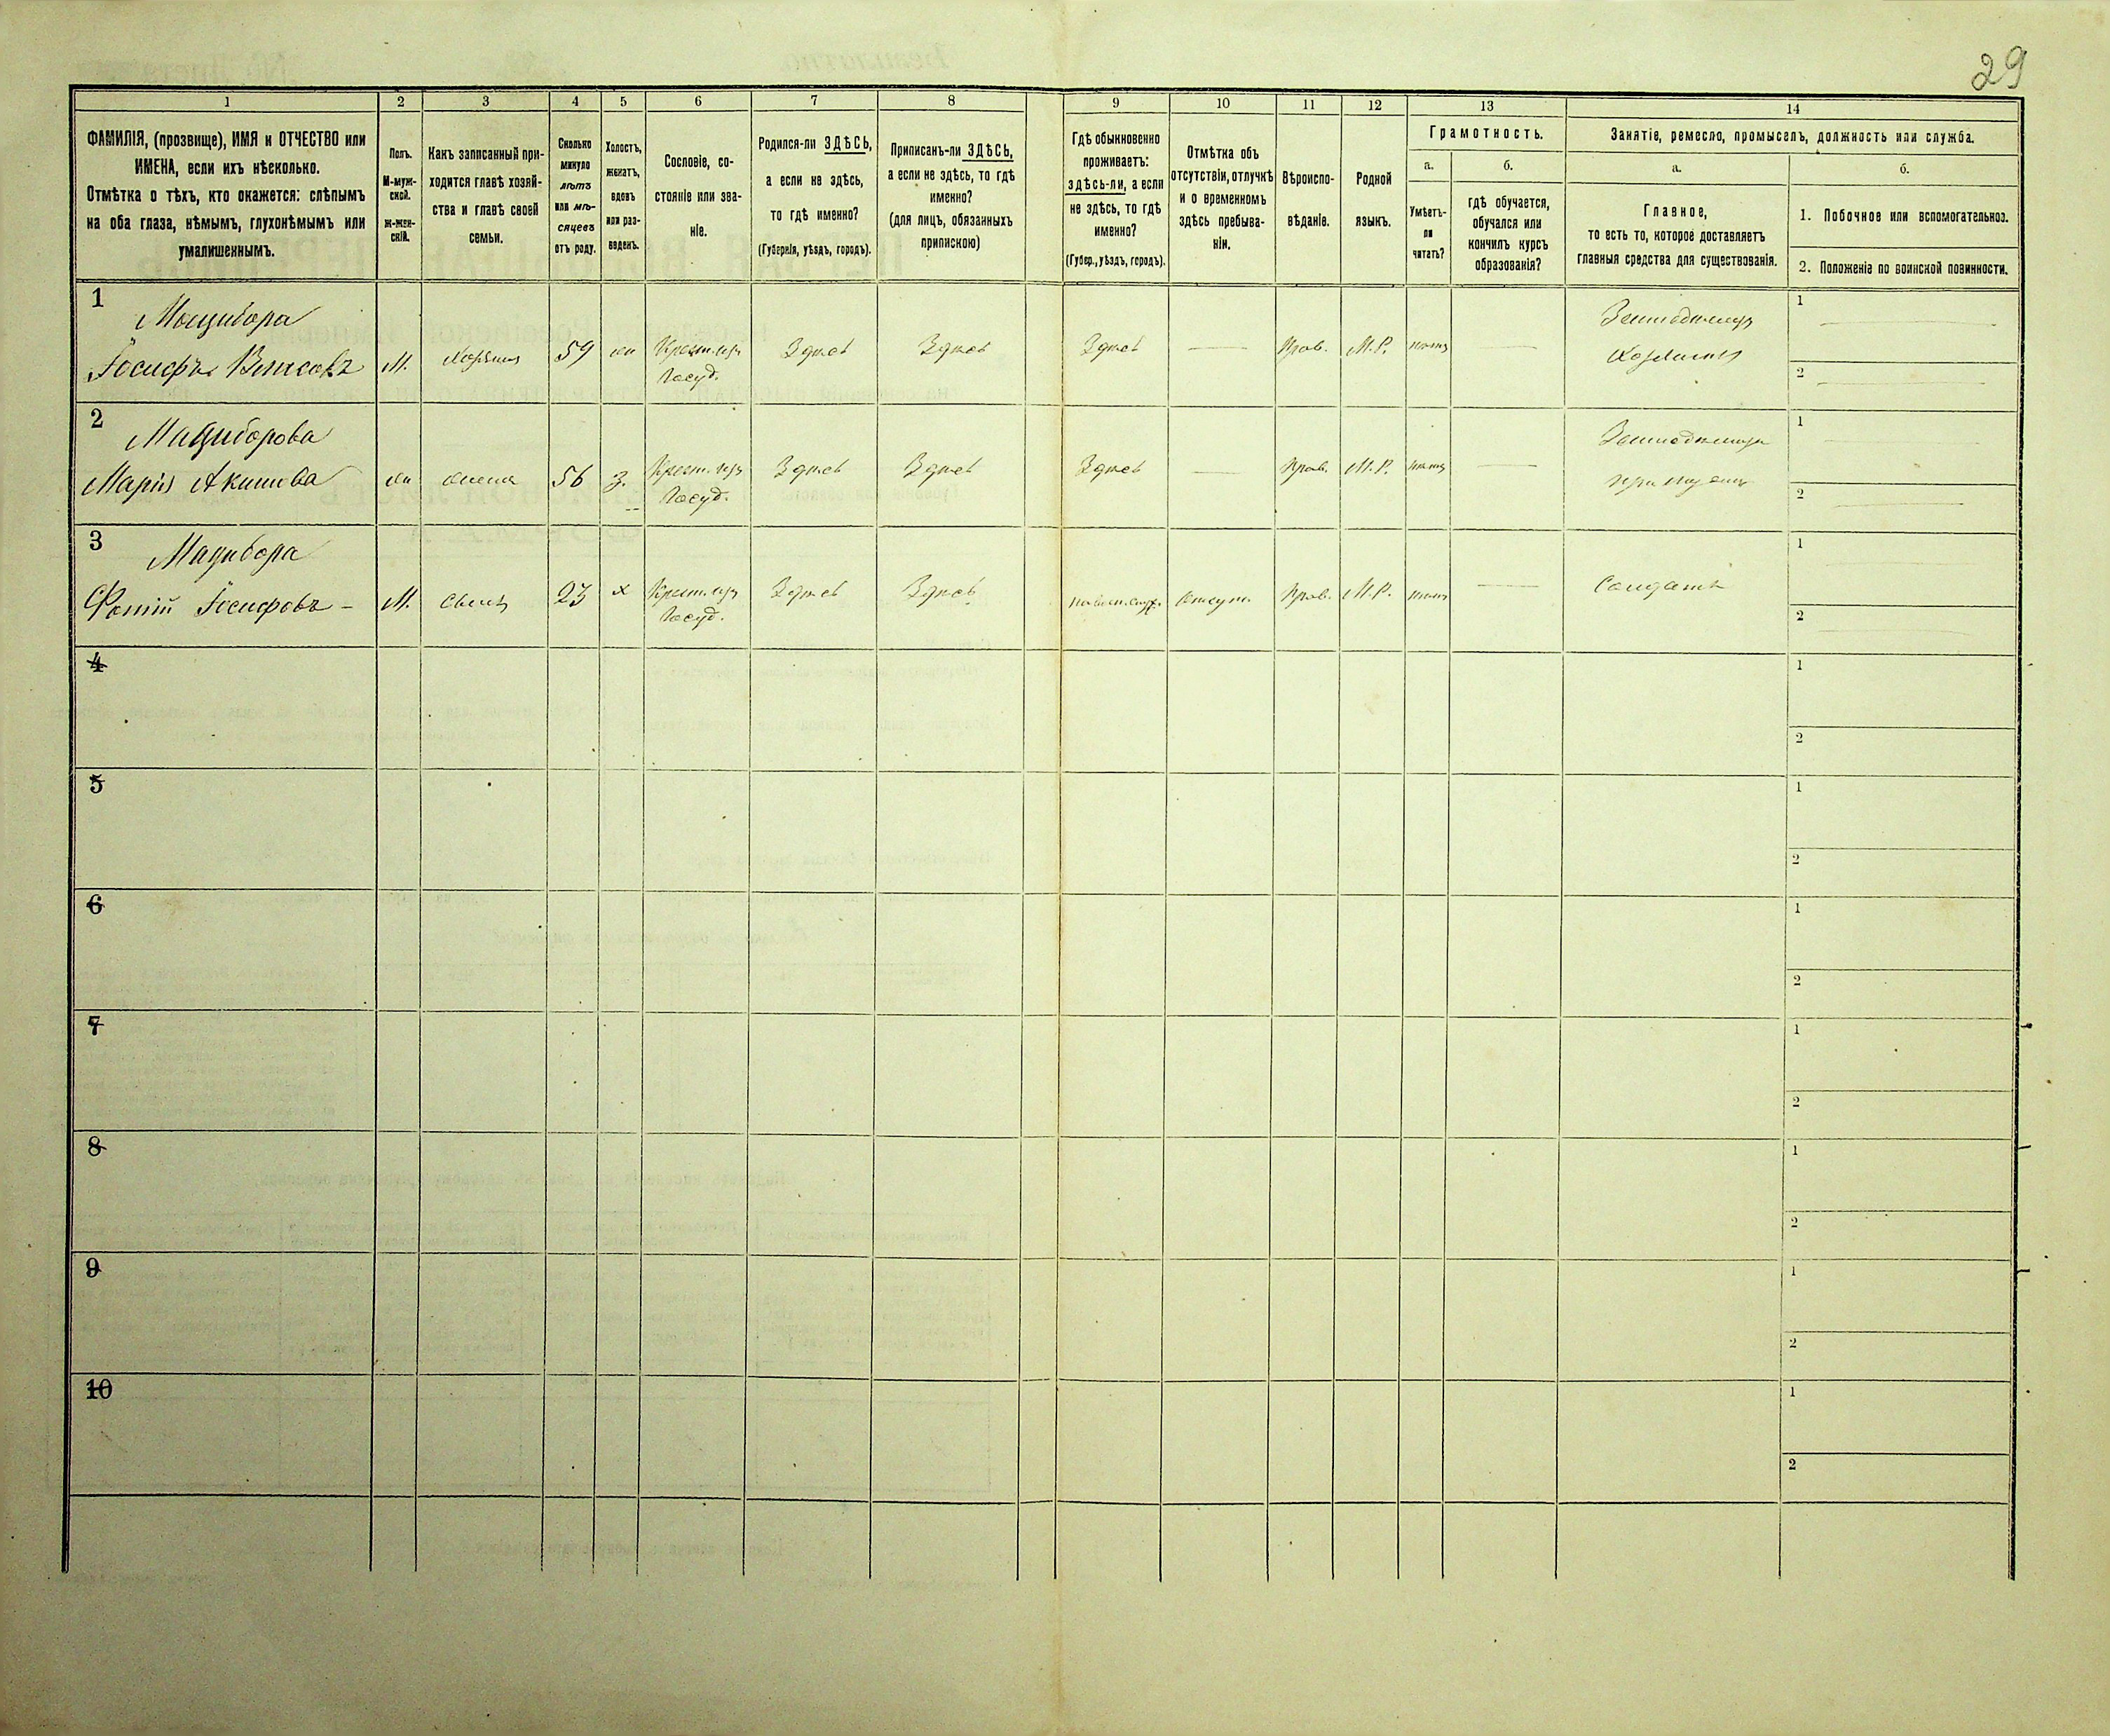 29
1 2 3 4 5 6 7 8 9 10 11 12 13 14
ФАМИЛІЯ, (прозвище), ИМЯ и ОТЧЕСТВО или
ИМЕНА, если ихъ нѣсколько.
Отмѣтка о тѣхъ, кто окажется: слѣпымъ
на оба глаза, нѣмымъ, глухонѣмымъ или
умалишеннымъ.
Полъ.
М-муж-
ской.
Ж-жен-
скій.
Какъ записанный при-
ходится главѣ хозяй-
ства и главѣ своей
семьи.
Сколько
минуло
лѣтъ
или мѣ-
сяцевъ
отъ роду.
Холостъ,
женатъ,
вдовъ
или раз-
веденъ.
Сословіе, со-
стояніе или зва-
ніе.
Родился-ли ЗДѢСЬ,
а если не здѣсь,
то гдѣ именно?
(Губернія, уѣздъ, городъ).
Приписанъ-ли ЗДѢСЬ,
а если не здѣсь, то гдѣ
именно?
(для лицъ, обязанныхъ
припискою)
Гдѣ обыкновенно
проживаетъ:
здѣсь-ли, а если
не здѣсь, то гдѣ
именно?
(Губер., уѣздъ, городъ).
Отмѣтка объ
отсутствіи, отлучкѣ
и о временномъ
здѣсь пребыва-
ніи.
Вѣроиспо-
вѣданіе.
Родной
языкъ.
Грамотность.
а.
Умѣетъ-
ли
читать?
б.
гдѣ обучается,
обучался или
кончилъ курсъ
образованія?
Занятіе, ремесло, промыселъ, должность или служба.
а.
Главное,
то есть то, которое доставляетъ
главныя средства для существованія.
б.
1. Побочное или вспомогательное.
2. Положеніе по воинской повинности.
1
Мацибора
Іосифъ
М. 59 жн Крест. изъ Госуд. Здѣсь Здѣсь Здѣсь — Прав. М.Р. нѣтъ —
Хозяинъ
1
2
2
Мациборова
Марія Акимова
жн жена 56 з. Крест. изъ Госуд. Здѣсь Здѣсь Здѣсь — Прав. М.Р. нѣтъ —
при мужѣ
1
2
3
Мацибора
Фотій Іосифовъ -
М. сынъ 23 х Крест. изъ Госуд. Здѣсь Здѣсь Прав. М.Р. —
Солдатъ
1
2
4
1
2
5
1
2
6
1
2
7
1
2
8
1
2
9
1
2
10
1
2